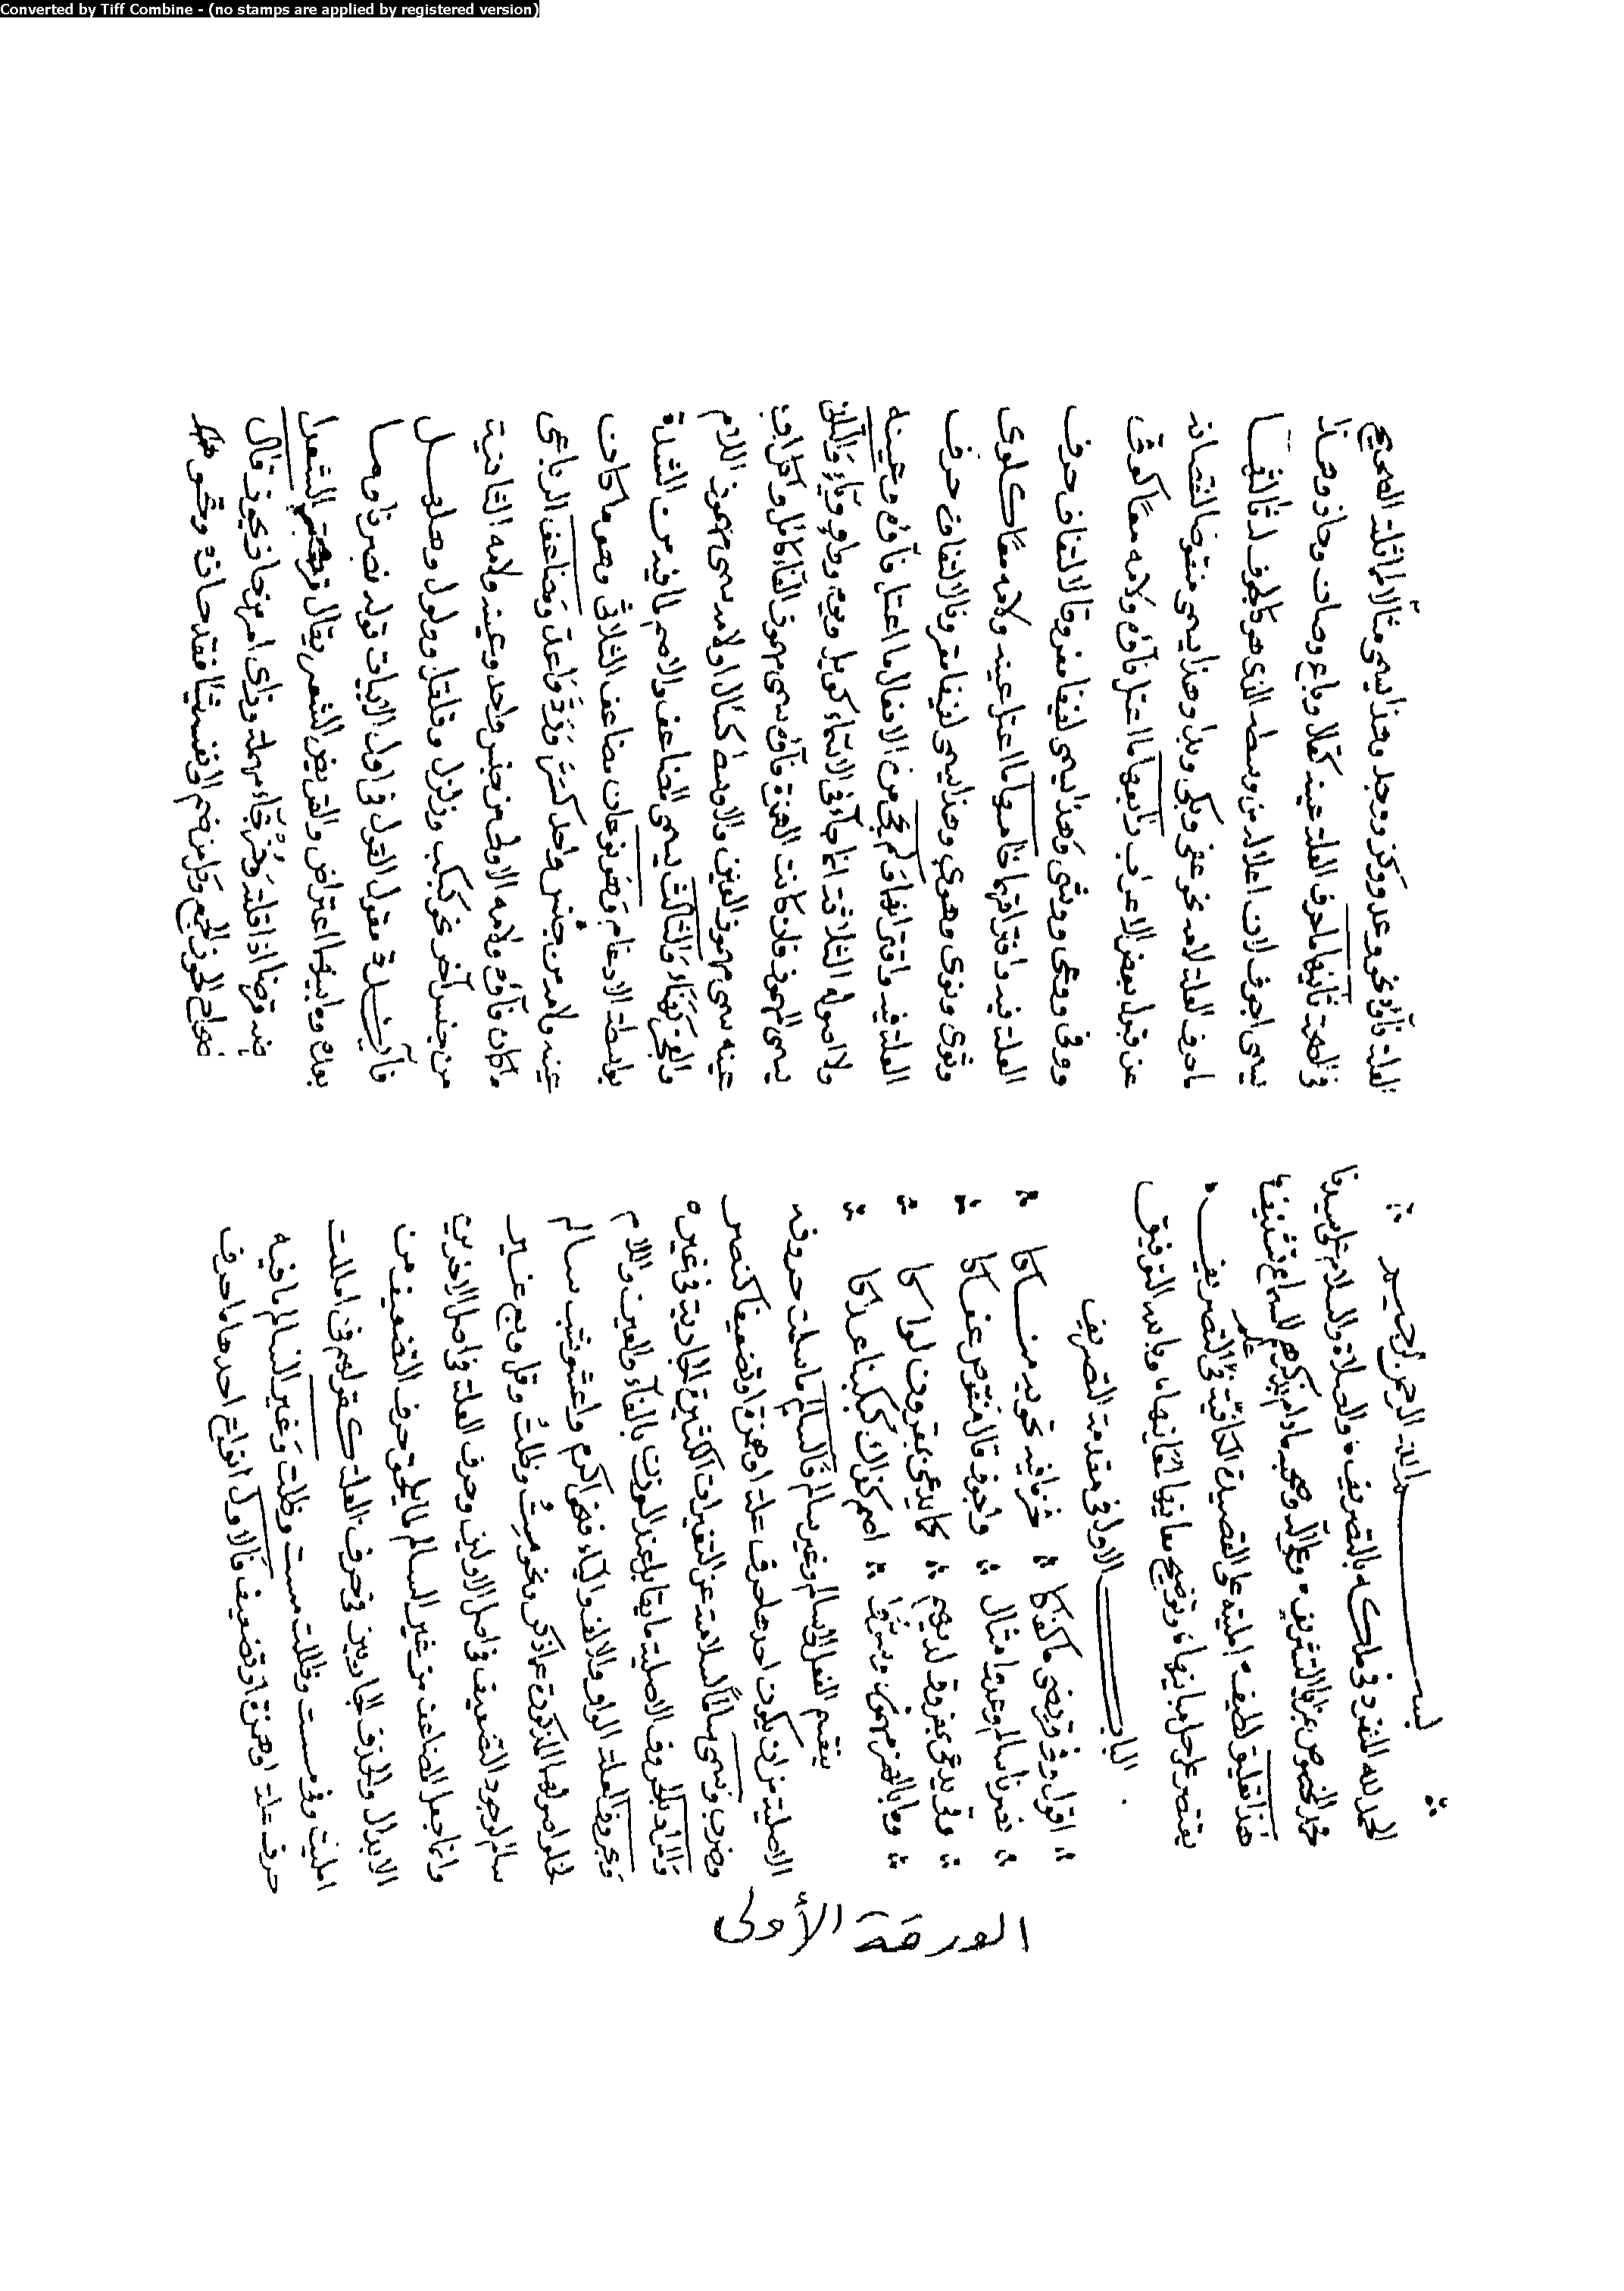 Converted by Tiff Combine - (no stamps are applied by registered version)
بسم الله الرحمن الرحيم
الحمد لله المتفرد في ملكه بالتصريف والصلاة والسلام على سيدنا
محمد المخصوص بمزايا التشريف وعلى آله وصحبه ما دام
هذا تعليق لطيف امليته على القصيدة الكافية في علم التصريف
يقتصر على حل مبانيها وتوضيح معانيها وبالله التوفيق
الباب الاول في مقدمة التصريف
اقول وفي قريضي ما كفاكا خذ ما فيه تحويه مناكا
نصرنا سالم وعدوا مثال واجوف قال منقوص عفاكا
وقى يدعى بمفروق لديهم كما يدعى بمقرون لواكا
وما بالهمز مهموز اصم كذاك
ينقسم الفعل الى سالم وغير سالم فالسالم ما سلمت حروفه
الاصلية من ان يكون احدها حرف علة او همزة او تضعيفا كنصر
وضرب وسمى سالما لسلامته عن التغيرات الكثيرة الجارية في غيره
والمراد بالحروف الاصلية ما يقابل عند الوزن بالفاء والعين واللام
وبحروف العلة الواو والالف والياء فنحو اكرم واعشوشب سالم
لخلو اصولها المذكورة عما ذكر ونحو مست وظلت وقل وبع غير
سالم لوجود التضعيف في اصل الاولين وحرف العلة في اصل الاخرين
وانما جعل المضاعف من غير السالم لما يلحق حرف التضعيف من
الابدال والحذف الجاريين في حروف العلة كقولهم في امللت
امليت وفي مسست وظللت مست وظلت وغير السالم ما فيه
حرف علة او همزة او تضعيف فالاول انواع احدها ما حرف
الورقة الأولى
العلة فاؤه نحو وعد ووكز ووجد وهذا يسمى مثالا لمماثلته الصحيح
في الصحة ثانيها ما حرف العلة عينه كقال وباع وصاد وحاذ وهذا
يسمى اجوف لان اعلاله من وسطه الذي هو كالجوف له ثالثها
ما حرف العلة لامه نحو عفى وبكى وبدا وهذا يسمى منقوصا لنقصانه
عن قبول بعض الاعراب رابعها ما اعتل فاؤه ولامه معا كوقى
ووفى ووعى ووشى وهذا يسمى لفيفا مفروقا لالتفاف حرف
العلة فيه وافتراقها خامسها ما اعتل عينه ولامه معا كلوى
وثوى ونوى وهوى وهذا يسمى لفيفا مقرونا لالتفاف حرف
العلة فيه واقترانها ولم يجئ من الافعال ما اعتل فاؤه وعينه
ولا اصوله الثلاثة انما جاء في الاسماء كويل ويوم وواو وياء والثاني
يسمى المهموز فان كانت الهمزة فاؤه سمى مهموز الفاء كاكل وامر او
عينه سمى مهموز العين والاوسط كسأل او لامه سمى مهموز اللام
والعجز كهنأ والثالث يسمى المضاعف والاصم لما فيه من الشدة
بواسطة الادغام وهو نوعان مضاعف الثلاثي وهو ما كان
عينه ولامه من جنس واحد كمس ورد واعد ومضاعف الرباعي
ما كان فاؤه ولامه الاولى من جنس واحد وعينه ولامه الثانية
من جنس آخر نحو كبكب وزلزل وقلقل وولول وهلهل
فائدة مقول القول في اول الابيات قوله نصرنا وما
بعده وما بينهما اعتراض والقريض الشعر يقال قرضت الشعر